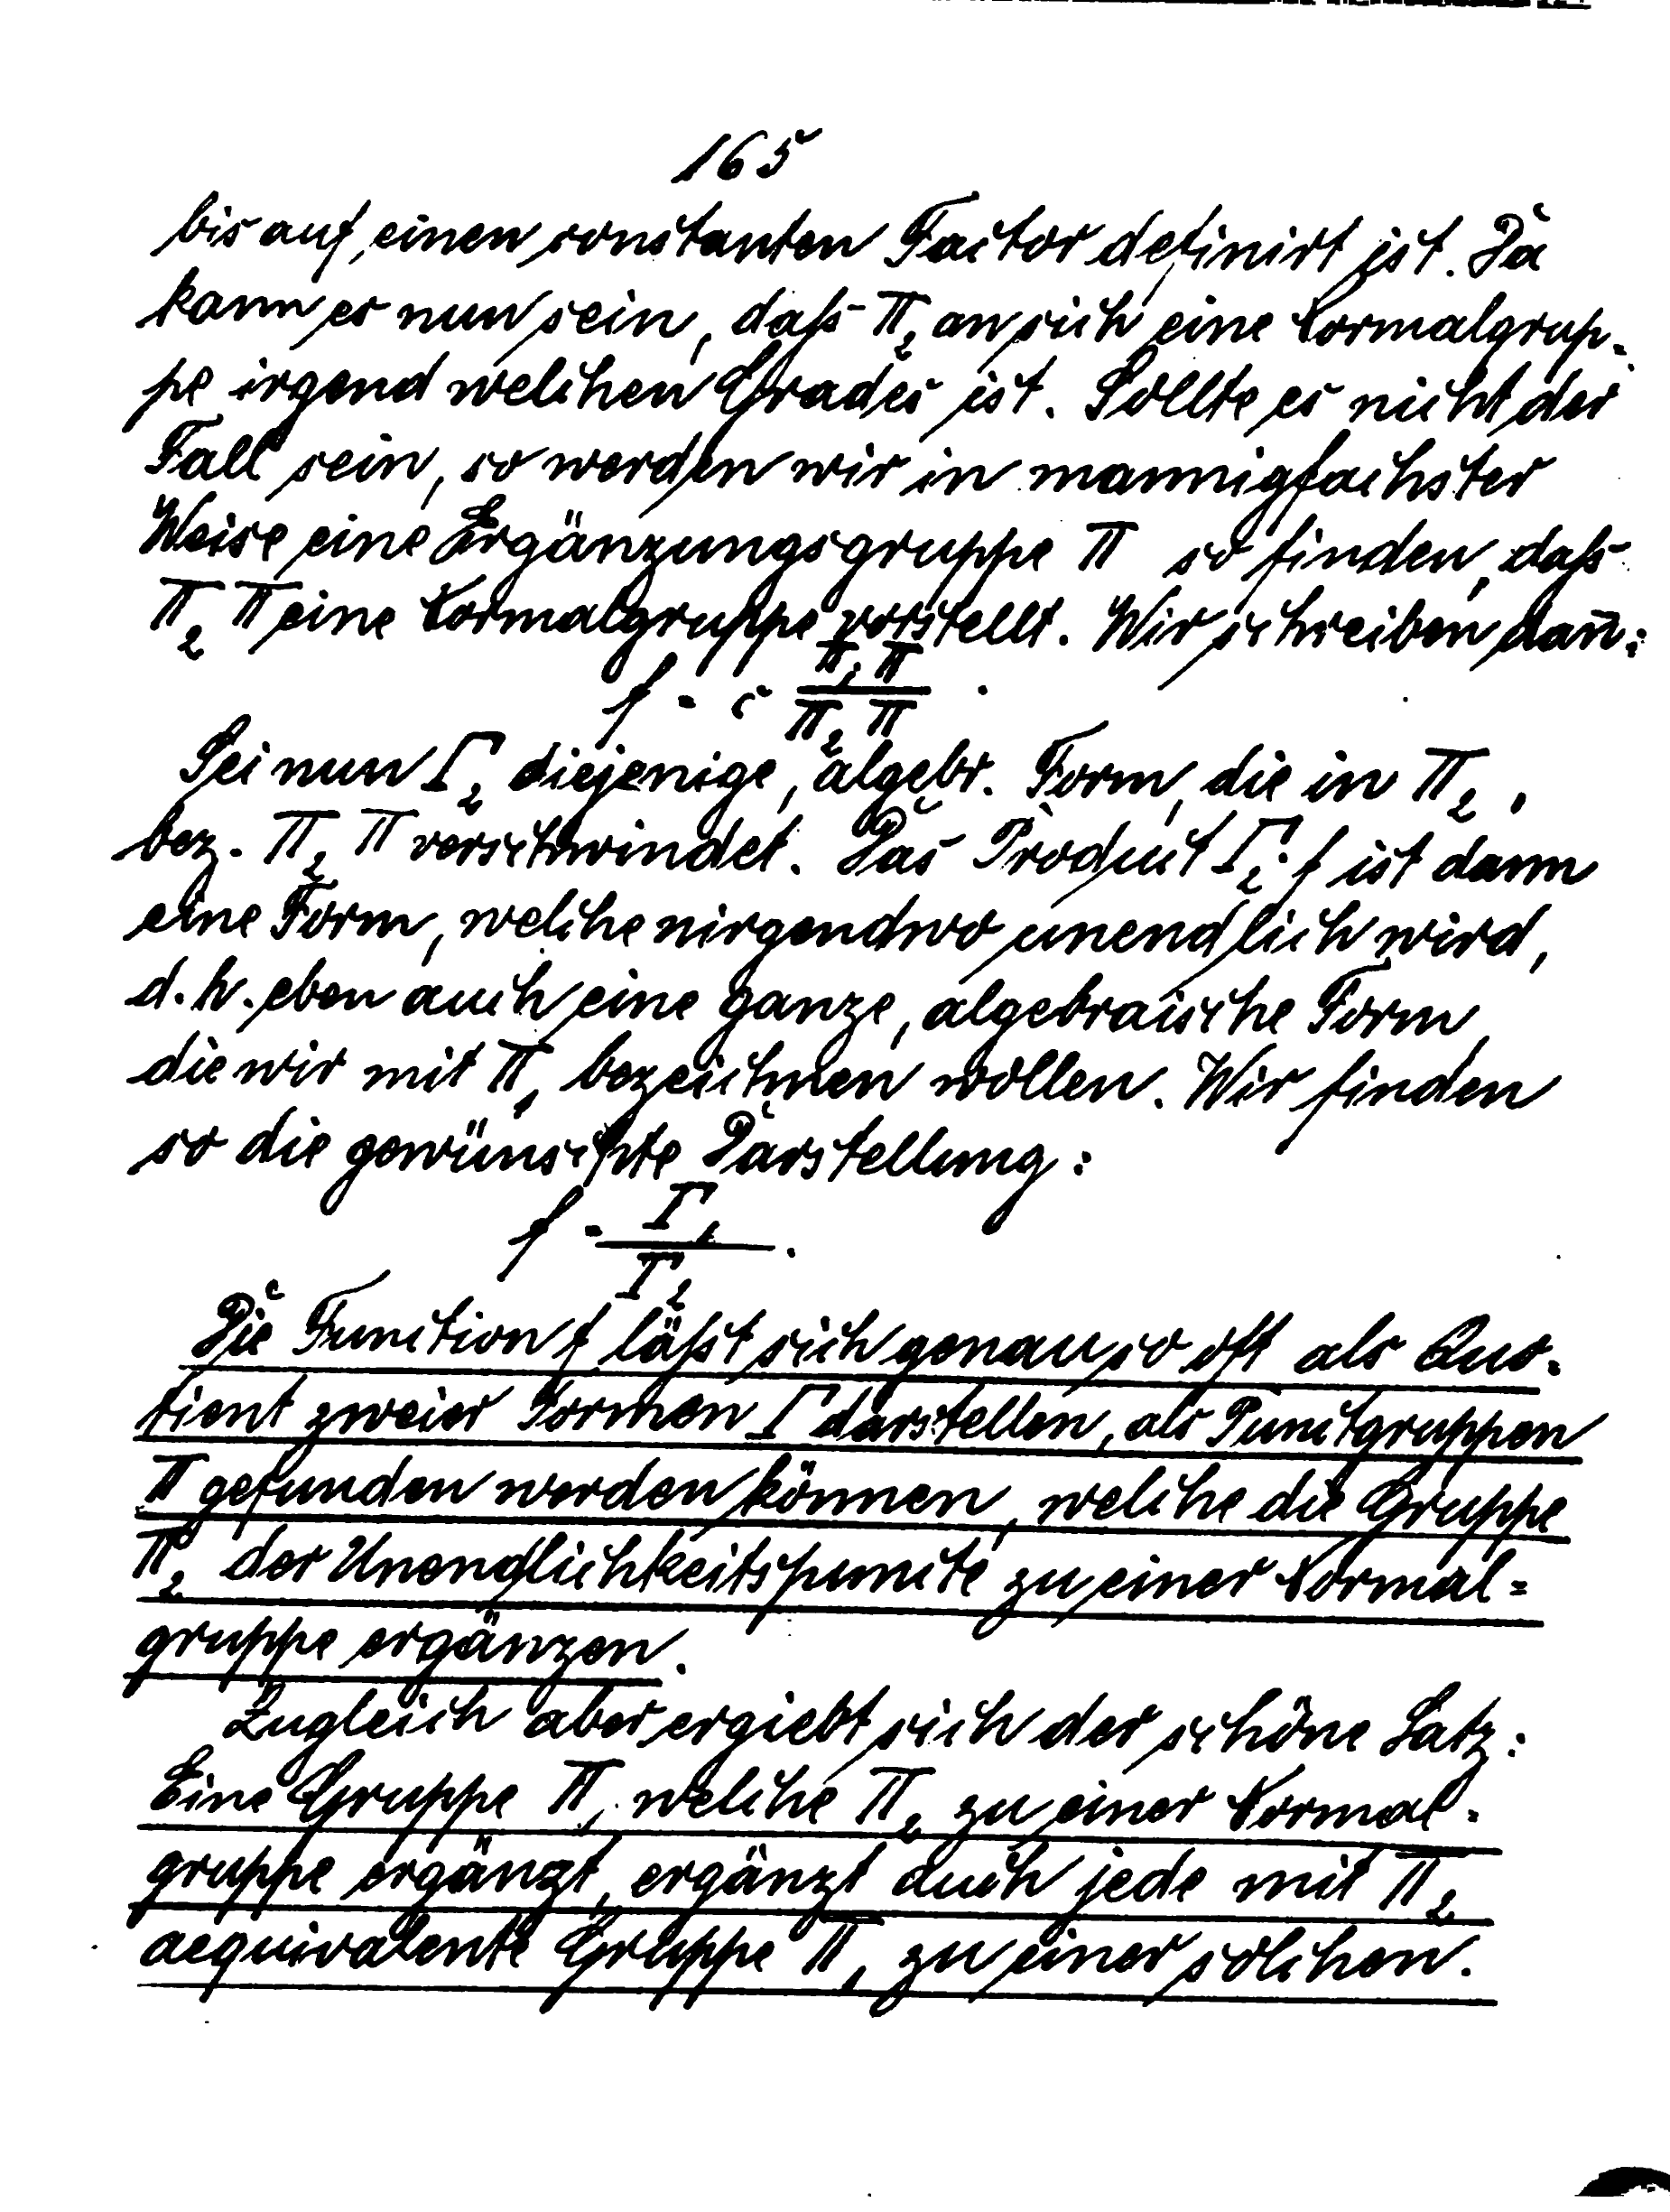 165
bis auf einen constanten Factor definirt ist. Da
kann es nun sein, daß Π₂ an sich eine Normalgrup-
pe irgend welchen Grades ist. Sollte es nicht der
Fall sein, so werden wir in mannigfachster
Weise eine Ergänzungsgruppe Π so finden, daß
Π₂ Π eine Normalgruppe vorstellt. Wir schreiben dan̄:
f = c Π₁ Π / Π₂ Π .
Sei nun Γ₂ diejenige, algebr. Form, die in Π₂,
bez. Π₂ Π verschwindet. Das Product Γ₂·f ist dann
eine Form, welche nirgendwo unendlich wird,
d. h. eben auch eine ganze, algebraische Form,
die wir mit Π₁ bezeichnen wollen. Wir finden
so die gewünschte Darstellung:
f = Γ₁ / Γ₂ .
Die Function f läßt sich genau so oft als Quo-
tient zweier Formen Γ darstellen, als Punctgruppen
Π gefunden werden können, welche die Gruppe
Π₂ der Unendlichkeitspuncte zu einer Normal=
gruppe ergänzen.
Zugleich aber ergiebt sich der schöne Satz:
Eine Gruppe Π, welche Π₂ zu einer Normal-
gruppe ergänzt, ergänzt auch jede mit Π₂
aequivalente Gruppe Π₁ zu einer solchen.